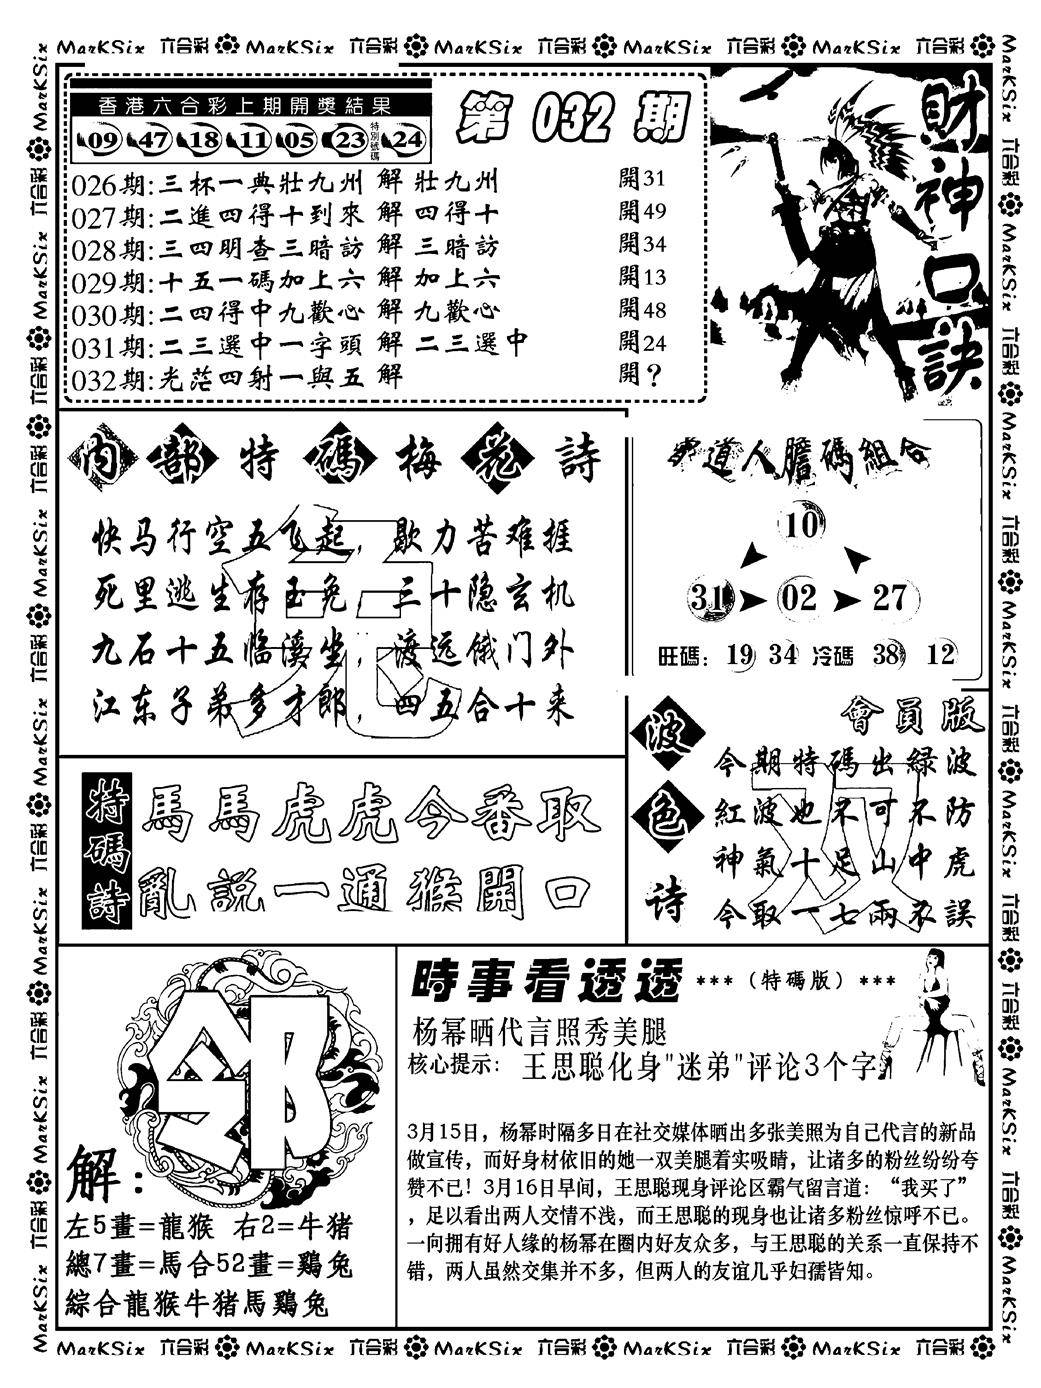 MarKSix 六合彩 MarKSix 六合彩 MarKSix 六合彩 MarKSix 六合彩 MarKSix 六合彩
香港六合彩上期開獎結果
09 47 18 11 05 23 特別號碼 24
第 032 期
026期:三杯一典壯九州 解 壯九州 開31
027期:二進四得十到來 解 四得十 開49
028期:三四明查三暗訪 解 三暗訪 開34
029期:十五一碼加上六 解 加上六 開13
030期:二四得中九歡心 解 九歡心 開48
031期:二三選中一字頭 解 二三選中 開24
032期:光茫四射一與五 解 開?
財神口訣
內部特碼梅花詩
兔
快马行空五飞起，歇力苦难捱
死里逃生存玉兔，三十隐玄机
九石十五临溪坐，渡远俄门外
江东子弟多才郎，四五合十来
道人膽碼組合
10
31 02 27
旺碼: 19 34 冷碼 38 12
特碼詩
馬馬虎虎今番取
亂説一通猴開口
波色诗
會員版
双
今期特碼出緑波
紅波也不可不防
神氣十足山中虎
今取一七兩不誤
邻
解:
左5畫=龍猴 右2=牛猪
總7畫=馬合52畫=鷄兔
綜合龍猴牛猪馬鷄兔
時事看透透 ***（特碼版）***
杨幂晒代言照秀美腿
核心提示: 王思聪化身"迷弟"评论3个字
3月15日，杨幂时隔多日在社交媒体晒出多张美照为自己代言的新品
做宣传，而好身材依旧的她一双美腿着实吸睛，让诸多的粉丝纷纷夸
赞不已！3月16日早间，王思聪现身评论区霸气留言道：“我买了”
，足以看出两人交情不浅，而王思聪的现身也让诸多粉丝惊呼不已。
一向拥有好人缘的杨幂在圈内好友众多，与王思聪的关系一直保持不
错，两人虽然交集并不多，但两人的友谊几乎妇孺皆知。
MarKSix 六合彩 MarKSix 六合彩 MarKSix 六合彩 MarKSix 六合彩 MarKSix 六合彩